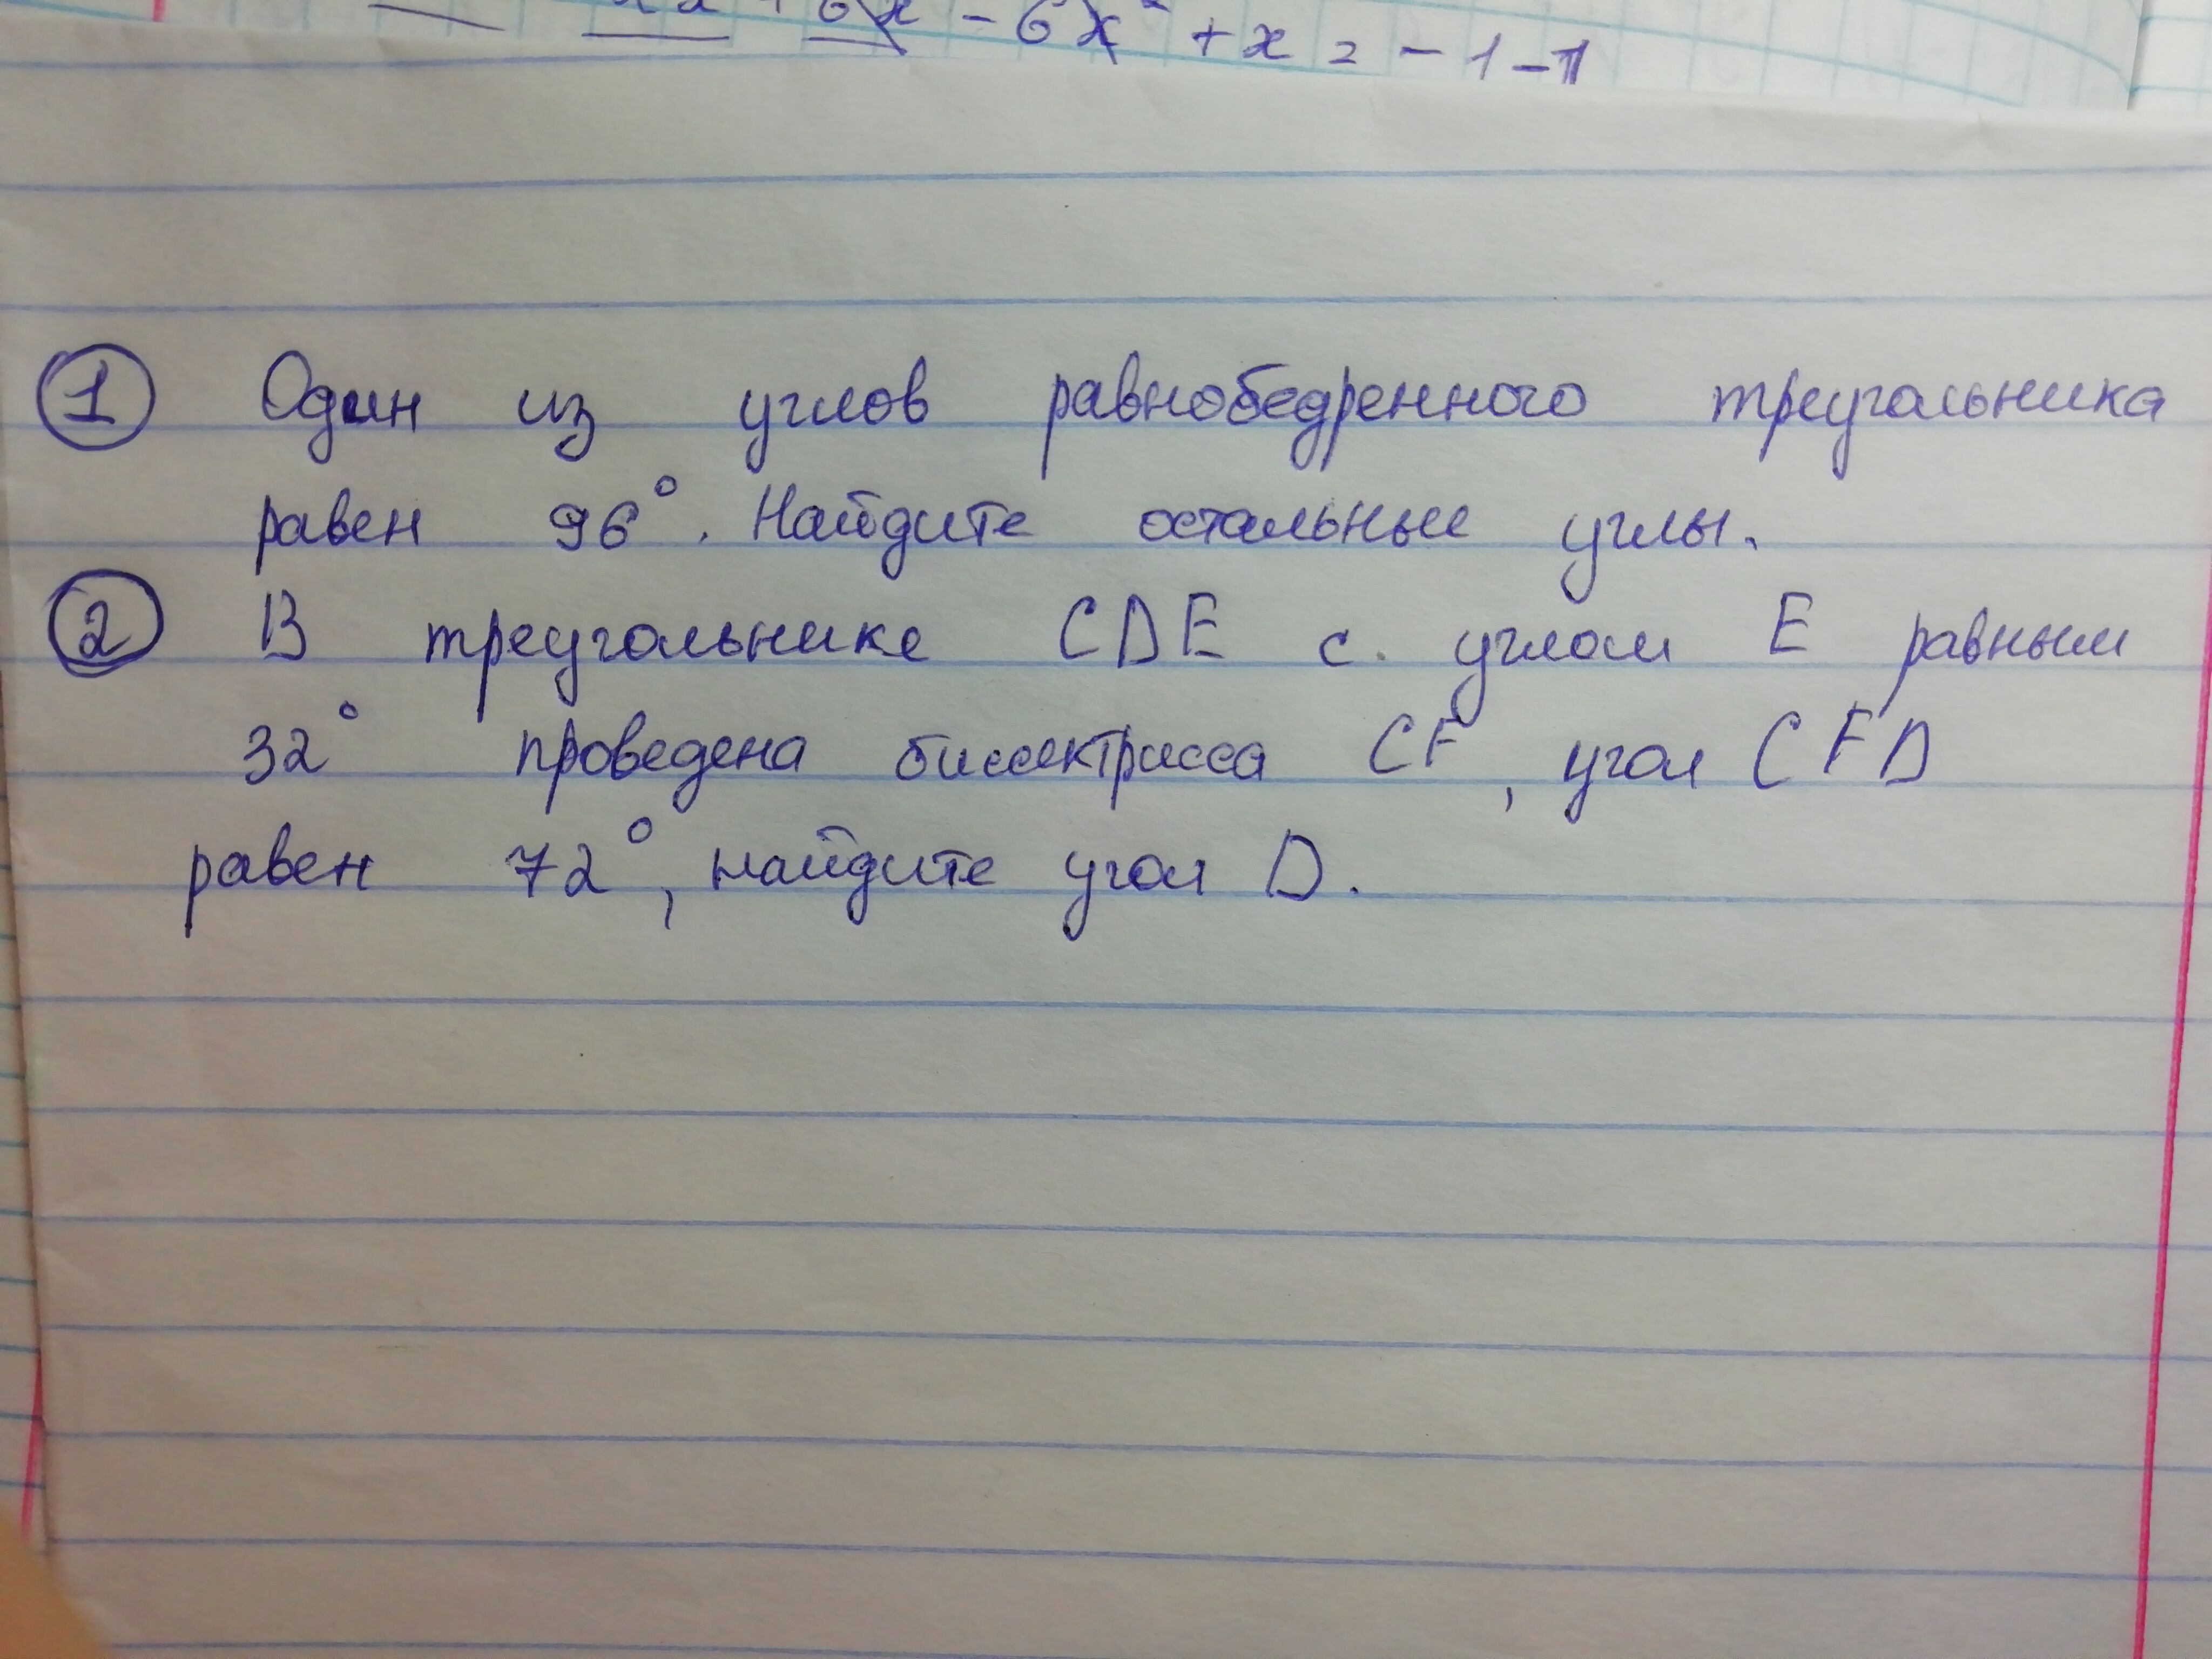 - 6x² + x = - 1 - 11
① Один из углов равнобедренного треугольника
равен 96°. Найдите остальные углы.
② В треугольнике CDE с. углом E равным
32° проведена биссектрисса CF, угол CFD
равен 72°, найдите угол D.